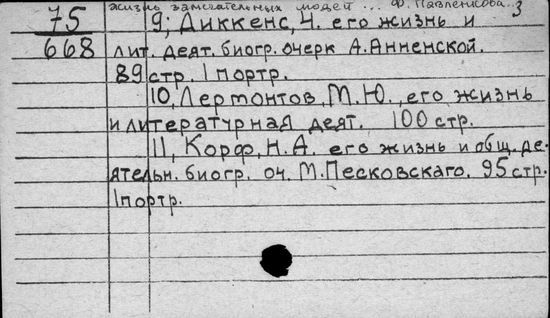 жизнь замечательных людей ... Ф. Павленкова. 3
75 9; Диккенс, Ч. его жизнь и
668 лит. деят. биогр. очерк А. Анненской.
89 стр. 1 портр.
10, Лермонтов, М.Ю., его жизнь
и литературная деят. 100 стр.
11, Корф, Н.А. его жизнь и общ. де-
ятельн. биогр. оч. М. Песковскаго. 95 стр.
1 портр.